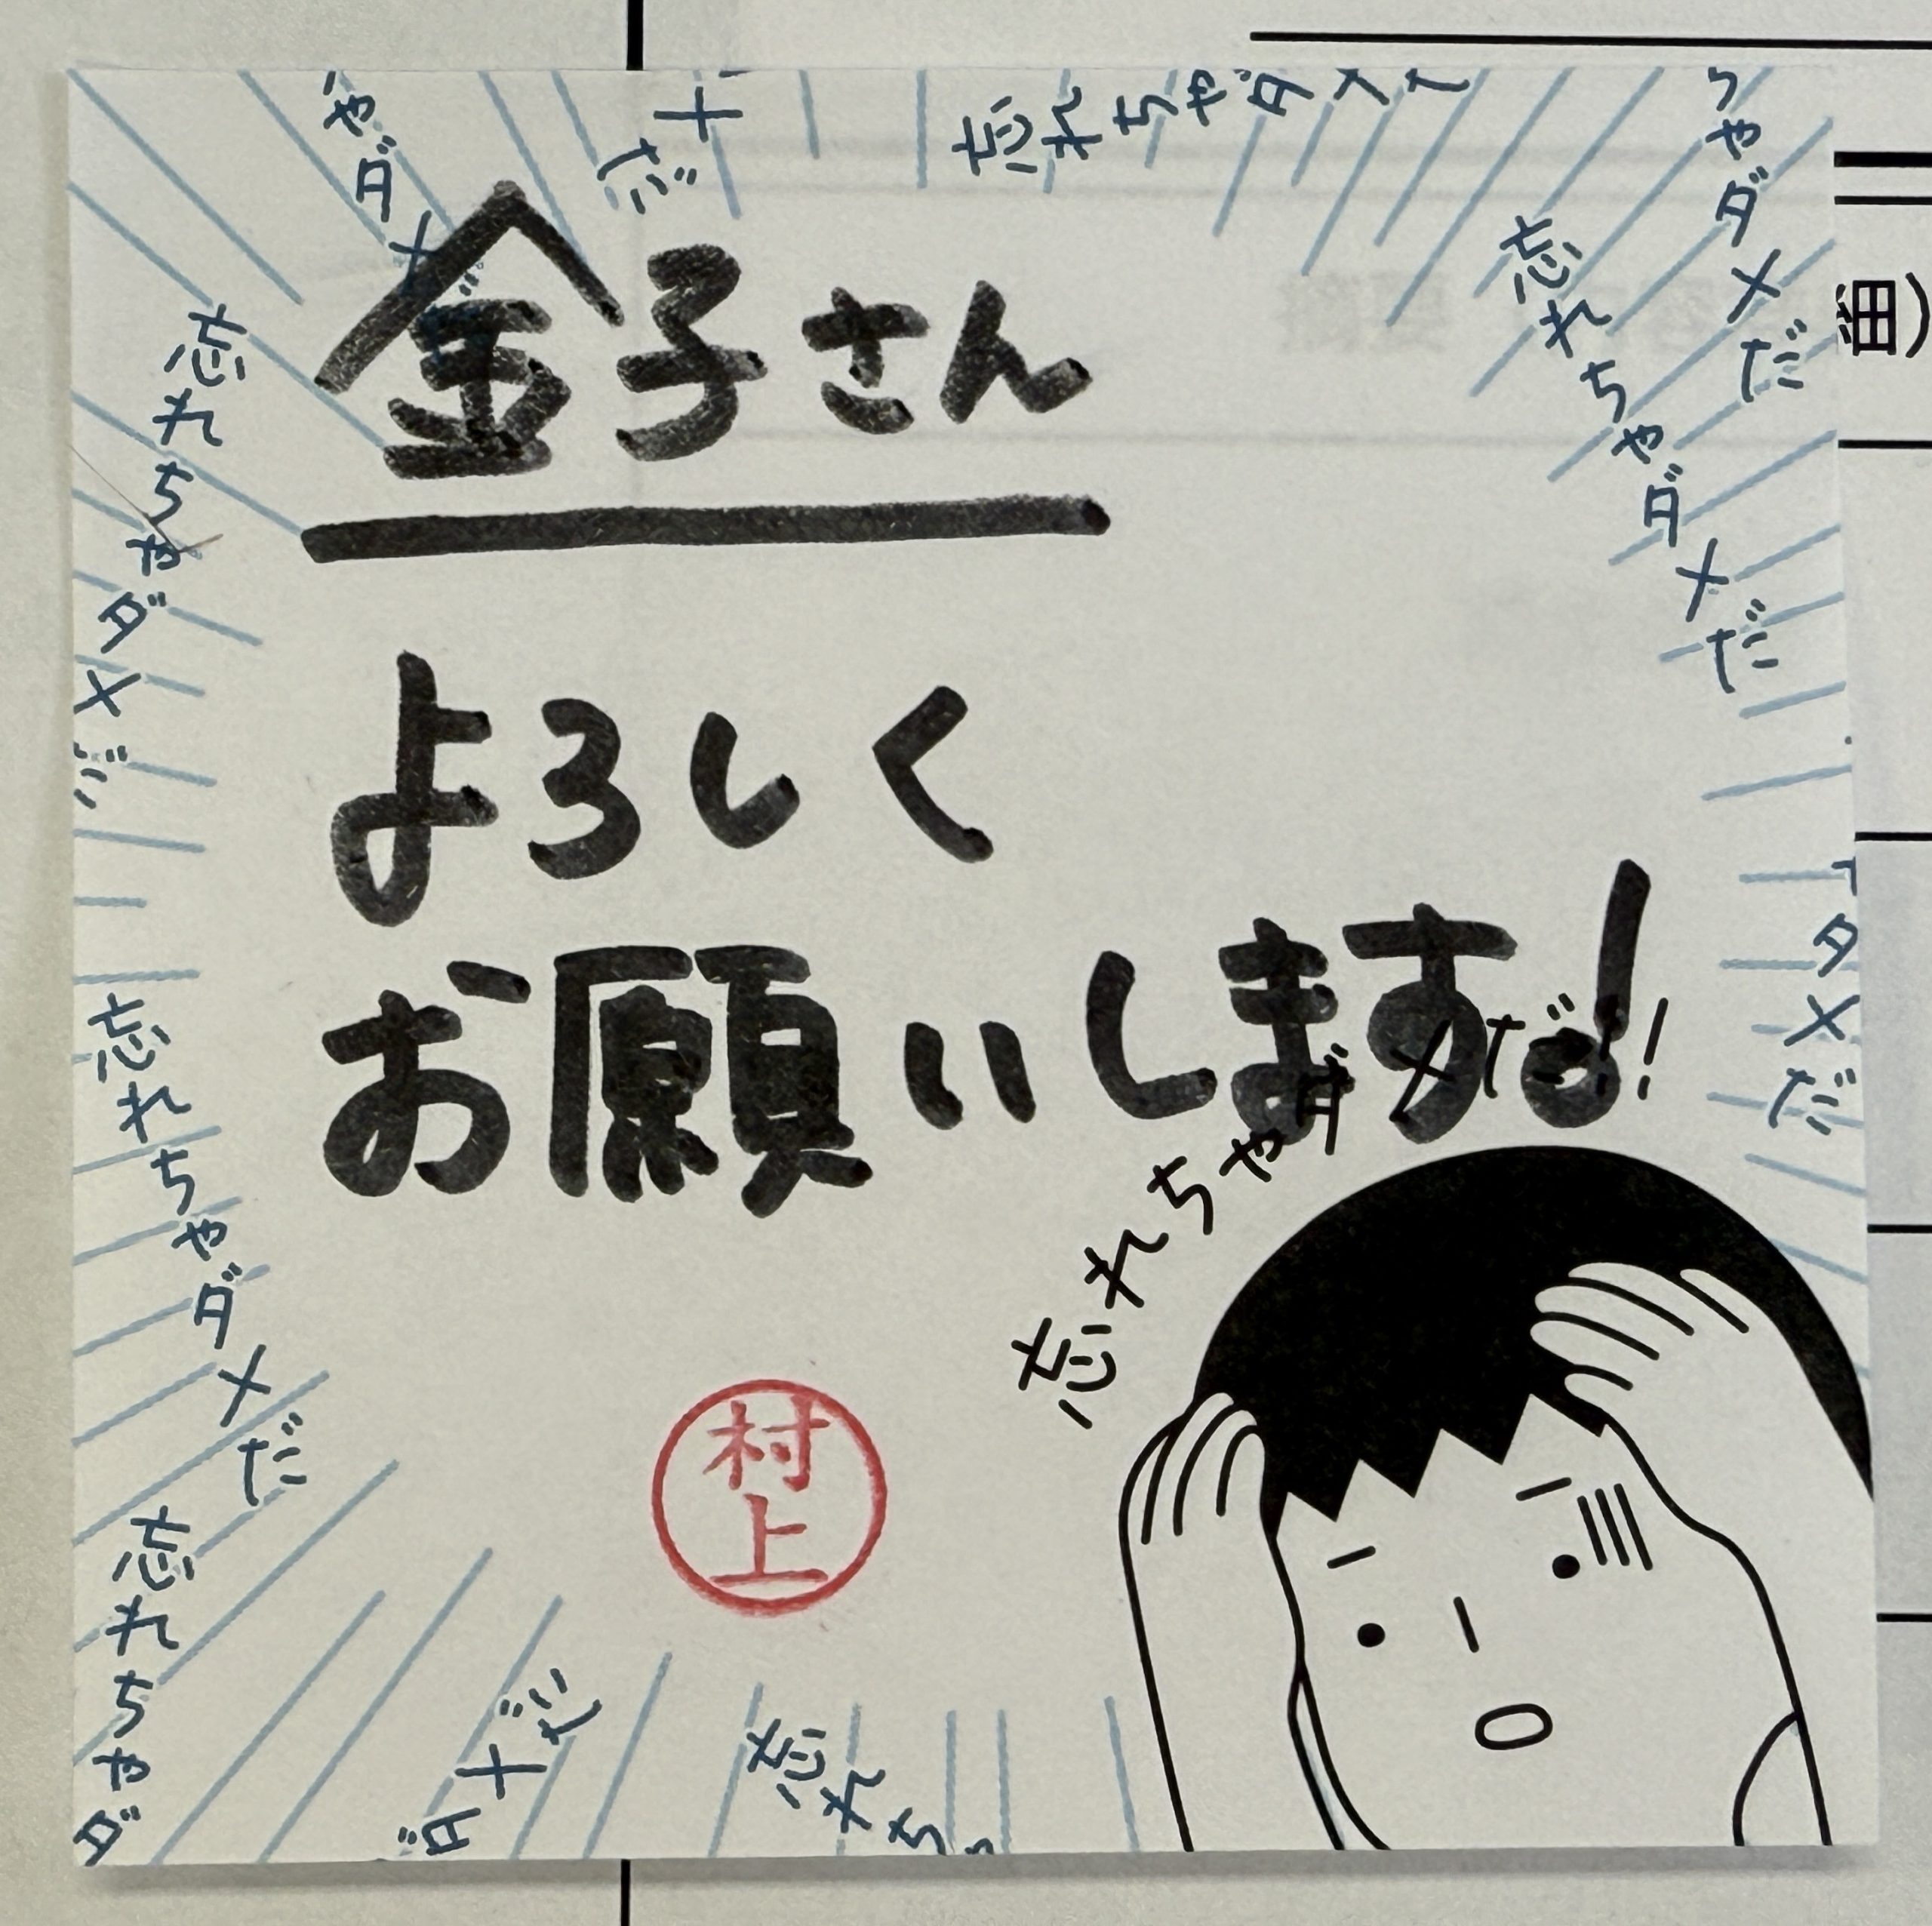 ゃダメだ
メだ
忘れちゃダメだ
ちゃダメだ
忘れちゃダメだ
忘れちゃダメだ
金子さん
細）
よろしく
お願いします!
ダメだ
忘れちゃダメだ
忘れちゃダメだ!!
村上
忘れちゃダ
ダメだ
忘れち